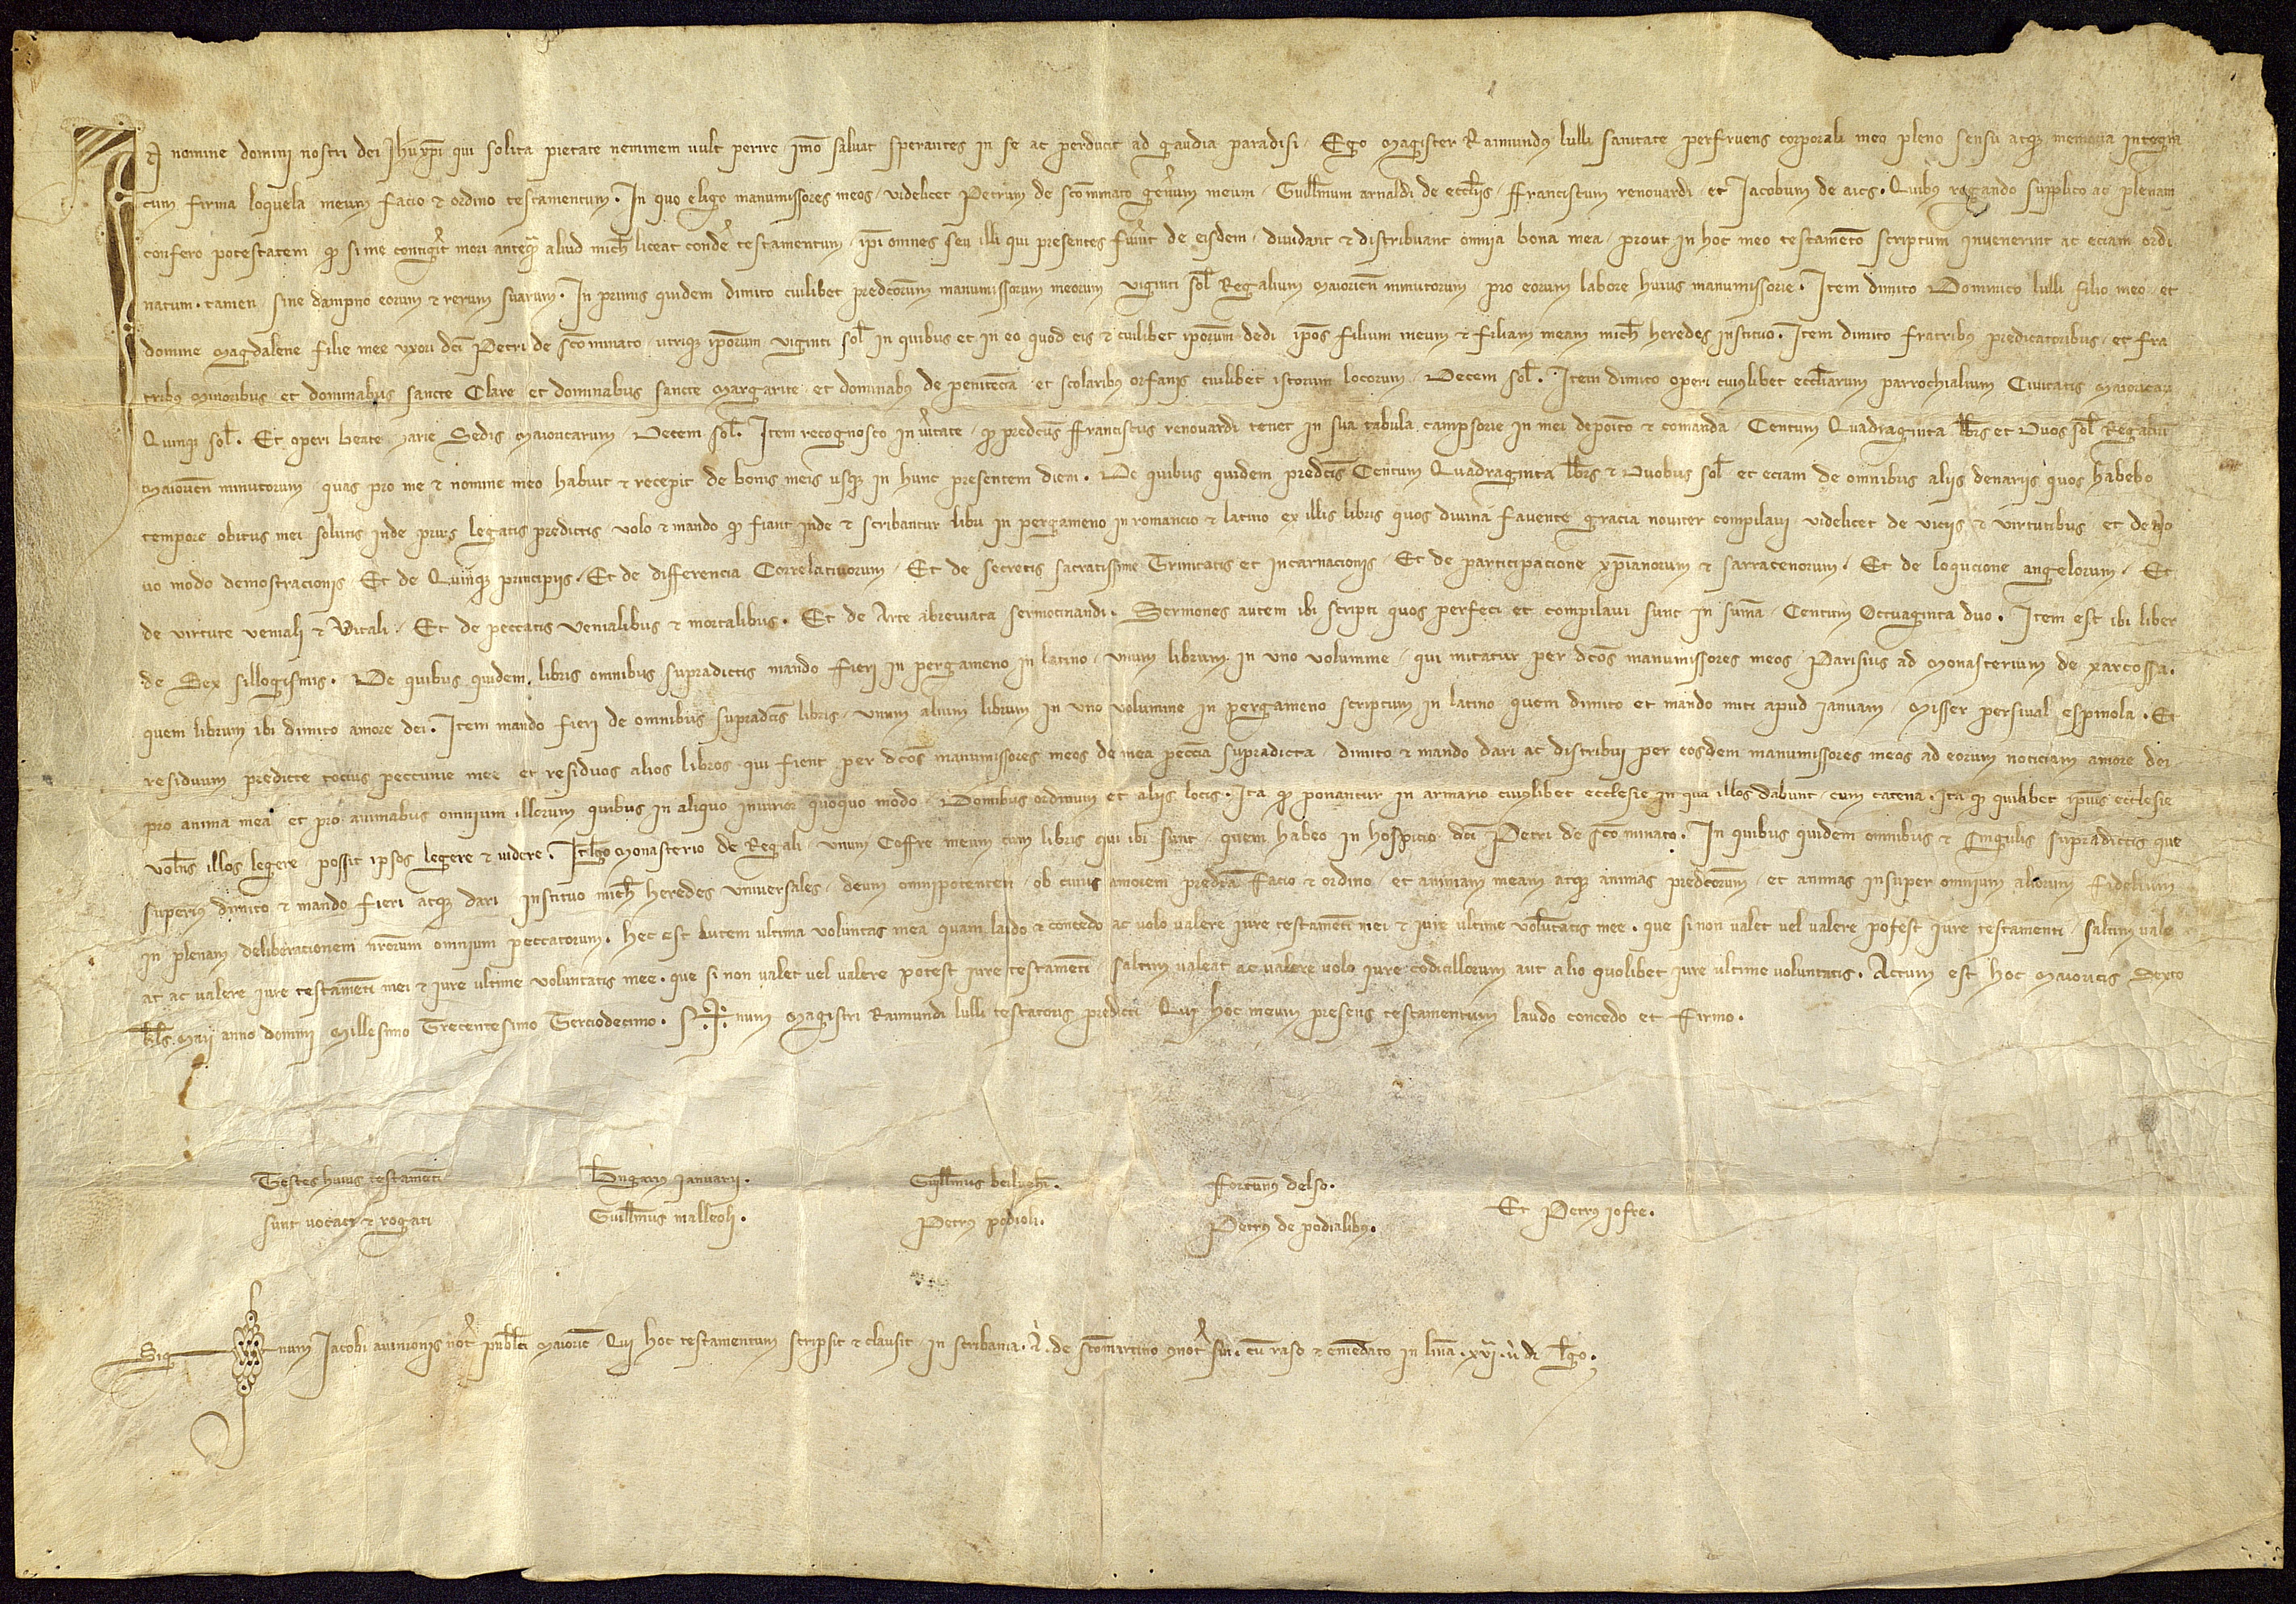 In nomine domini nostri dei Jhu xpi qui solita pietate neminem vult perire imo salvat sperantes in se ac perducit ad gaudia paradisi. Ego Magister Raimundus lulli sanitate perfruens corporali meo pleno sensu atque memoria integra
cum firma loquela meum facio et ordino testamentum. In quo eligo manumissores meos videlicet Petrum de scominato gen'um meum. Guillmum arnaldi de ecclis. ffranciscum renovardi et Jacobum de aics. Quibus rogando supplico ac plenam
confero potestatem quod si me contigerit mori anteq aliud mich liceat conder testamentum ipi omnes seu illi qui presentes fuerint de eisdem dividant et distribuant omnia bona mea prout in hoc meo testamento scriptum invenerint ac eciam ordi
natum tamen sine dampno eorum et rerum suarum. In primis quidem dimito cuilibet predcorum manumissorum meorum viginti sol Regalium maioricn minutorum pro eorum labore huius manumissorie. Item dimito Dominico lulli filio meo et
domine Magdalene filie mee uxori dci Petri de scominato utrique iporum viginti sol in quibus et in eo quod eis et cuilibet iporum dedi ipos filium meum et filiam meam mich heredes instituo. Item dimito fratribus predicatoribus et fra
tribus minoribus et dominabus sancte Clare et dominabus sancte Margarite et dominabus de penitecia et scolaribus orfanis cuilibet istorum locorum Decem sol. Item dimito operi cuiuslibet eccliarum parrochialium Civitatis maioricar
Quinque sol. Et operi beate marie Sedis maioricarum Decem sol. Item recognosco in v'itate quod predcus ffranciscus renovardi tenet in sua tabula campsorie in mei depoito et comanda Centum Quadraginta libras et Duos sol Regalium
maioricn minutorum quas pro me et nomine meo habuit et recepit de bonis meis usque in hunc presentem diem. De quibus quidem predcis Centum Quadraginta libris et Duobus sol et eciam de omnibus aliis denariis quos habebo
tempore obitus mei solutis inde prius legatis predictis volo et mando quod fiant inde et scribantur libri in pergameno in romancio et latino ex illis libris quos divina favente gracia noviter compilavi videlicet de viciis et virtutibus et de no
vo modo demostracionis Et de Quinque principiis. Et de differencia Correlativorum. Et de secretis sacratissime Trinitatis et incarnacionis. Et de participacione xpianorum et sarracenorum. Et de loqucione angelorum. Et
de virtute veniali et Vitali. Et de peccatis venialibus et mortalibus. Et de Arte abreviata sermocinandi. Sermones autem ibi scripti quos perfeci et compilavi sunt in suma Centum Octuaginta duo. Item est ibi liber
de Sex sillogismis. De quibus quidem libris omnibus supradictis mando fieri in pergameno in latino unum librum in uno volumine qui mitatur per dcos manumissores meos Parisius ad monasterium de xartossa.
quem librum ibi dimito amore dei. Item mando fieri de omnibus supradcis libris unum alium librum in uno volumine in pergameno scriptum in latino quem dimito et mando miti apud ianuam misser persival espinola. Et
residuum predicte tocius peccunie mee et residuos alios libros qui fient per dcos manumissores meos de mea peccia supradicta dimito et mando dari ac distribui per eosdem manumissores meos ad eorum noticiam amore dei
pro anima mea et pro animabus omnium illorum quibus in aliquo iniurior quoquo modo Domibus ordinum et aliis locis. Ita quod ponantur in armario cuiuslibet ecclesie in qua illos dabunt cum catena. Ita quod quilibet ipius ecclesie
volens illos legere possit ipsos legere et videre. It lego Monasterio de Regali unum Coffre meum cum libris qui ibi sunt quem habeo in hospicio dci Petri de scominato. In quibus quidem omnibus et singulis supradictis que
superius dimito et mando fieri atque dari instituo mich heredes universales deum omnipotentem ob cuius amorem predca facio et ordino et animam meam atque animas predcorum et animas insuper omnium aliorum fidelium
in plenam deliberacionem nrorum omnium peccatorum. hec est autem ultima voluntas mea quam laudo et concedo ac volo valere iure testamenti mei et iure ultime voluntatis mee. que si non valet vel valere potest iure testamenti saltim vale
at ac valere iure testamenti mei et iure ultime voluntatis mee. que si non valet vel valere potest iure testamenti saltim valeat ac valere volo iure codicillorum aut alio quolibet iure ultime voluntatis. Actum est hoc maioricis Sexto
kls Maii anno domini Millesimo Trecentesimo Terciodecimo. Sig+num Magistri Raimundi lulli testatoris predicti Qui hoc meum presens testamentum laudo concedo et firmo.
Testes huius testamenti
sunt vocati et rogati
Bngarius ianuarii.
Guillmus mallseoli.
Guillmus
Petrus podioli.
ffortunus delso.
Petrus de podialibus.
Et Petrus iofre.
Sig num Jacobi avinionis not publci maioric Qui hoc testamentum scripsit et clausit in scribania de sco martino not cu raso et emedato in linea xvi u di lego.